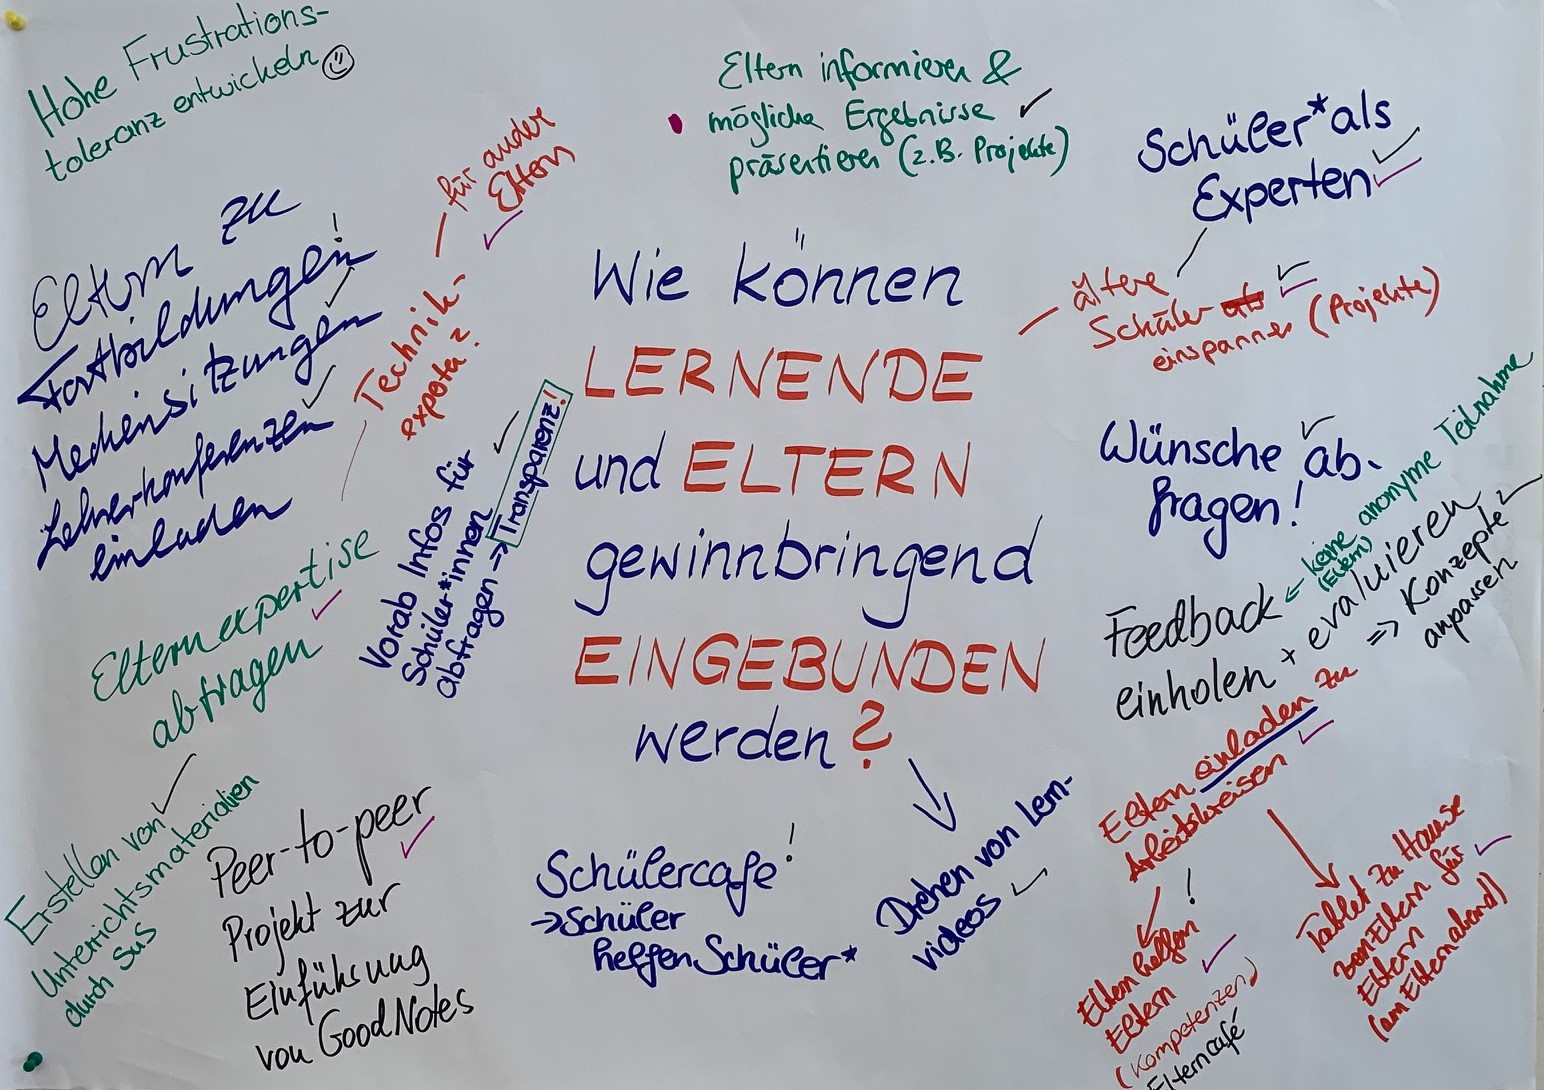 Hohe Frustrations-
toleranz entwickeln
Eltern informieren &
mögliche Ergebnisse
präsentieren (z.B. Projekte)
Schüler*als
Experten
ältere
Schüler als
einspannen (Projekte)
für andere
Eltern
Technik-
experte?
Eltern zu
Fortbildungen!
Mediensitzungen
Lehrerkonferenzen
einladen
Wie können
LERNENDE
und ELTERN
gewinnbringend
EINGEBUNDEN
werden?
Vorab Infos für
Schüler*innen
abfragen → Transparenz!
Wünsche ab-
fragen!
Feedback ← keine anonyme Teilnahme
(Eltern)
einholen + evaluieren
=> Konzepte
anpassen
Elternexpertise
abfragen
Erstellen von
Unterrichtsmaterialien
durch SuS
Peer-to-peer
Projekt zur
Einführung
von GoodNotes
Schülercafe!
→ Schüler
helfen Schüler*
Drehen von Lern-
videos
Eltern einladen zu
Arbeitskreisen
!
Eltern helfen
Eltern
(Kompetenzen)
Elterncafé
Tablet zu Hause
von Eltern für
Eltern
(am Elternabend)